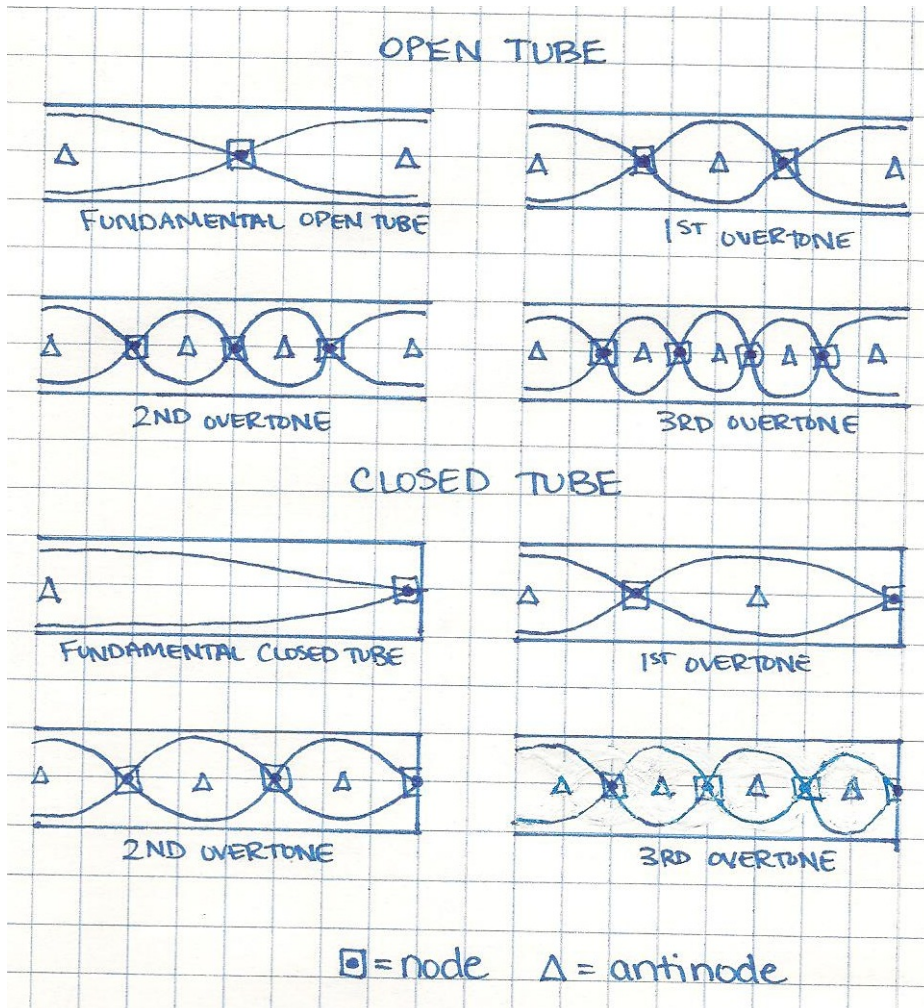 OPEN TUBE
FUNDAMENTAL OPEN TUBE
1ST OVERTONE
2ND OVERTONE
3RD OVERTONE
CLOSED TUBE
FUNDAMENTAL CLOSED TUBE
1ST OVERTONE
2ND OVERTONE
3RD OVERTONE
= node Δ = antinode